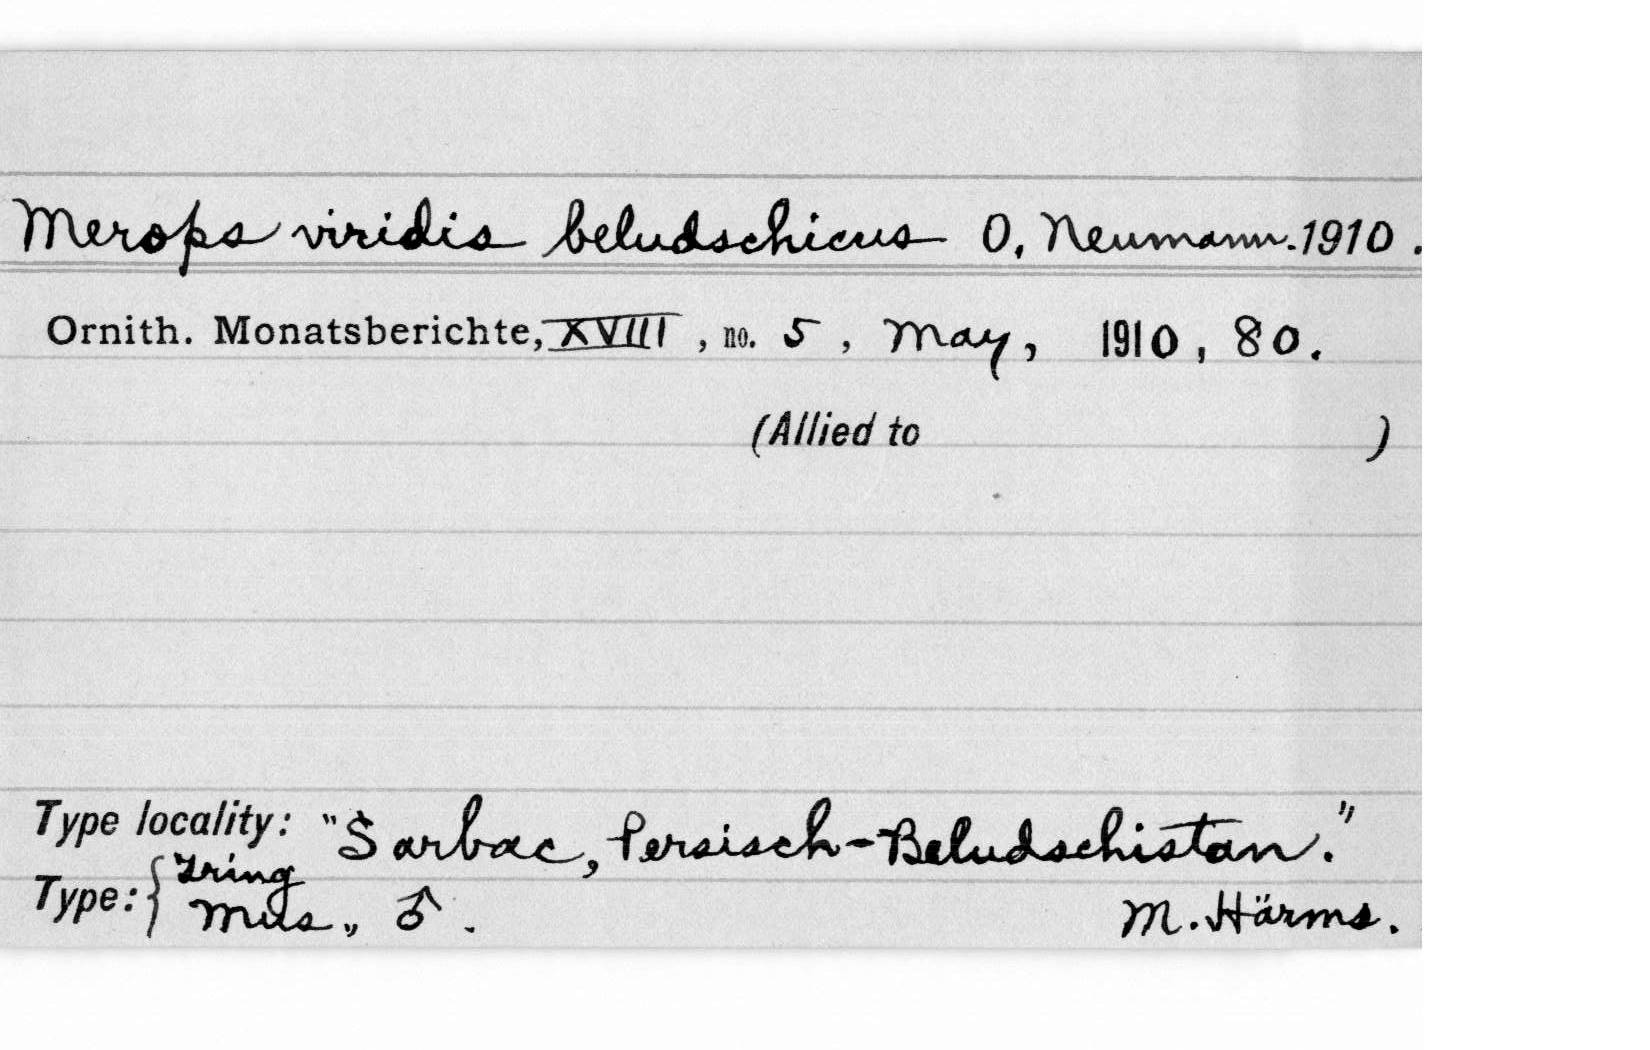 Merops viridis beludschicus O, Neumann. 1910.
Ornith. Monatsberichte, XVIII, no. 5, May, 1910, 80.
(Allied to )
Type locality: "Sarbac, Persisch-Beludschistan."
Type: { Tring
Mus., ♂. M. Härms.